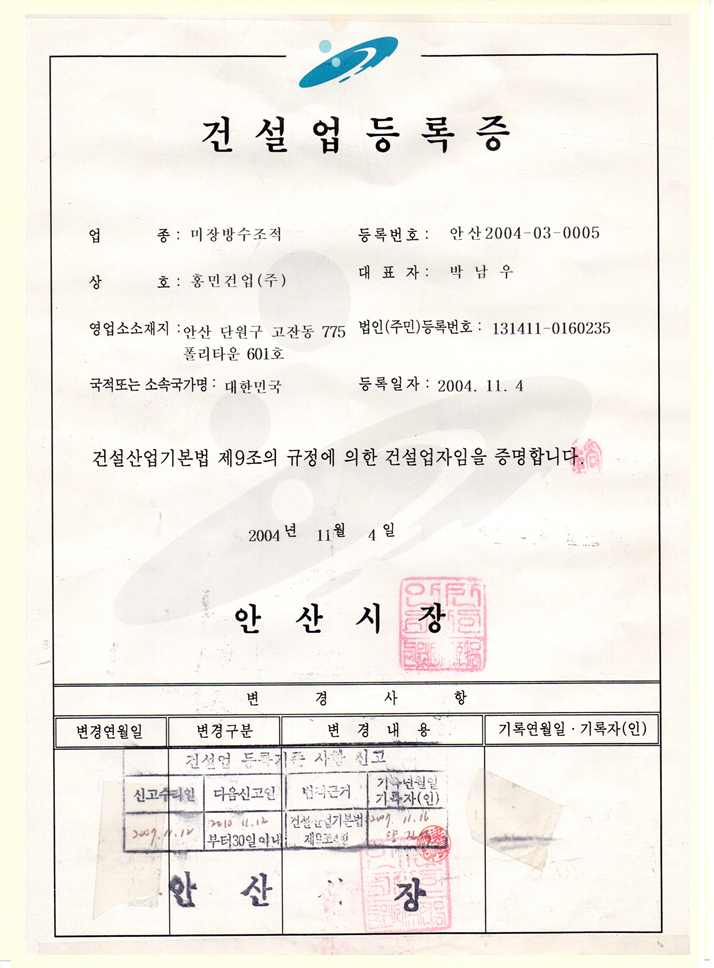 건설업등록증
업 종 : 미장방수조적
등록번호 : 안산2004-03-0005
상 호 : 홍민건업(주)
대 표 자 : 박 남 우
영업소소재지 : 안산 단원구 고잔동 775
폴리타운 601호
법인(주민)등록번호 : 131411-0160235
국적또는 소속국가명 : 대한민국
등록일자 : 2004. 11. 4
건설산업기본법 제9조의 규정에 의한 건설업자임을 증명합니다.
2004년 11월 4일
안 산 시 장
변 경 사 항
변경연월일 변경구분 변 경 내 용 기록연월일·기록자(인)
건설업 등록기준 사항 신고
신고수리일 다음신고일 법적근거 기록년월일
기록자(인)
2007. 11. 12 2010 11.12 건설산업기본법 2007. 11. 16
부터30일이내 제9조4항
안 산 장